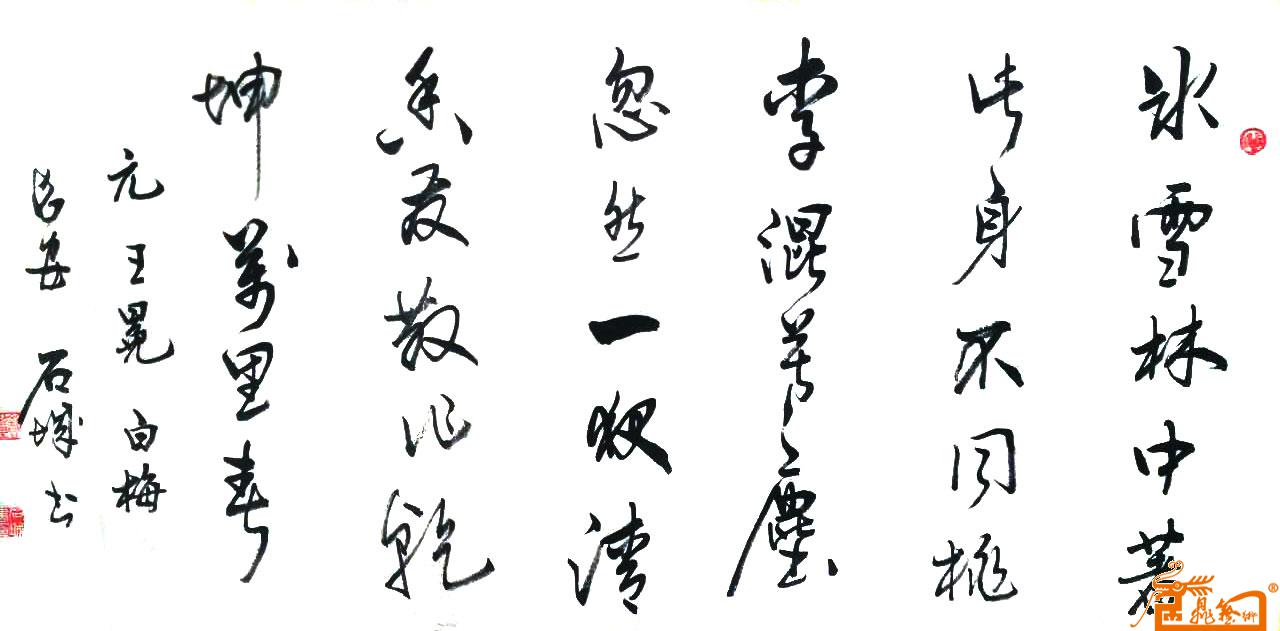 冰雪林中著
此身不同桃
李混芳塵
忽然一夜清
香發散作乾
坤萬里春
元 王冕 白梅
長安 石城 书